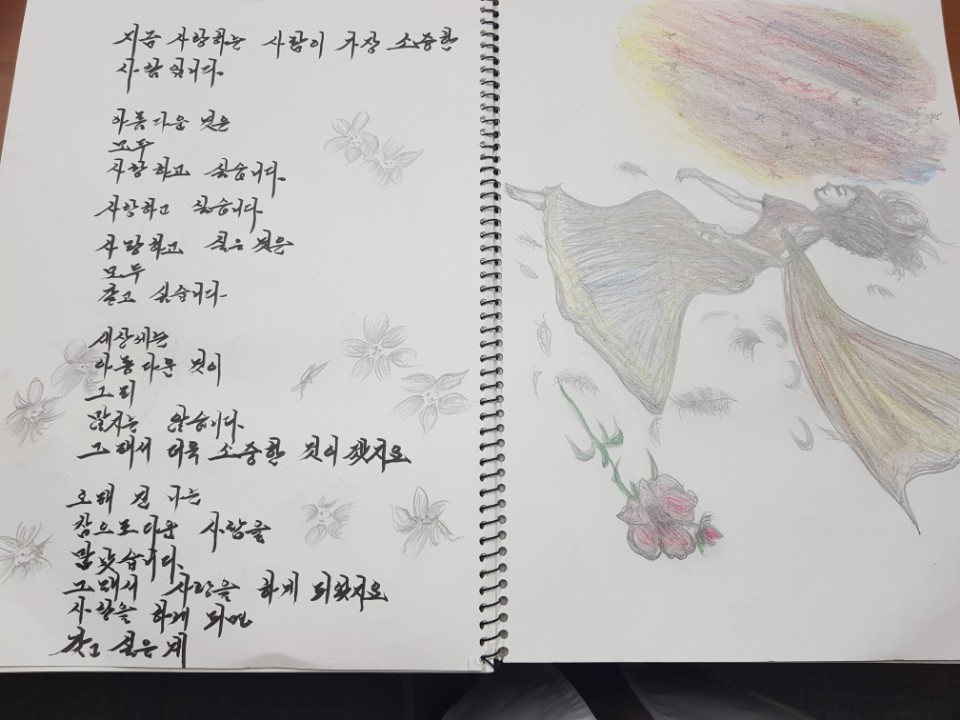 지금 사랑하는 사람이 가장 소중한
사람 입니다.
아름다운 것은
모두
사랑하고 싶습니다.
사랑하고 싶습니다.
사랑하고 싶은 것은
모두
갖고 싶습니다.
세상에는
아름다운 것이
그리
많지는 않습니다.
그래서 더욱 소중한 것이겠지요
오래 전 나는
참으로 다운 사람을
만났습니다.
그래서 사랑을 하게 되었지요
사랑을 하게 되면
갖고 싶은 게